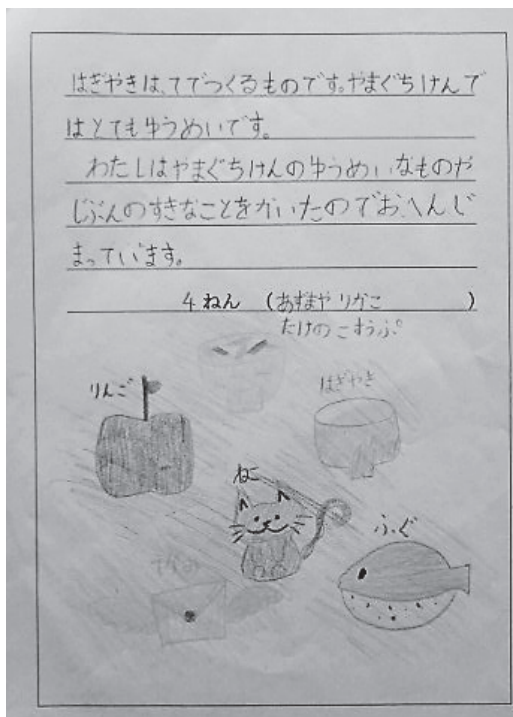 はぎやきは、てでつくるものです。やまぐちけんで
はとてもゆうめいです。
わたしはやまぐちけんのゆうめいなものや
じぶんのすきなことをかいたのでおへんじ
まっています。
4ねん (あずまや りかこ)
たけのこすうぷ
りんご
はぎやき
ねこ
ふぐ
てがみ